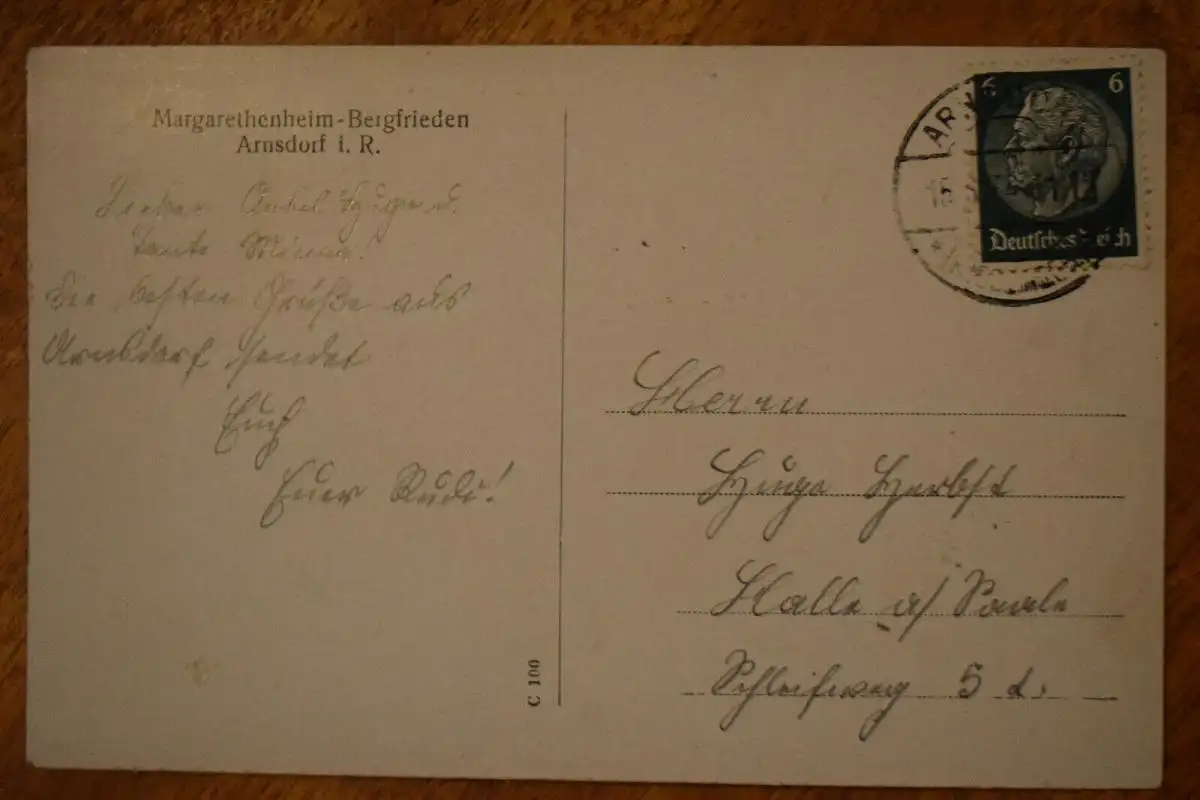 Margarethenheim-Bergfrieden
Arnsdorf i. R.
Lieber Onkel Hugo u.
Tante Minna!
Die besten Grüße aus
Arnsdorf sendet
Euch
Euer Rudi!
C 100
6 6
Deutsches Reich
AR
15
Herrn
Hugo Herbst
Halle a/ Saale
Schleifweg 5 d.